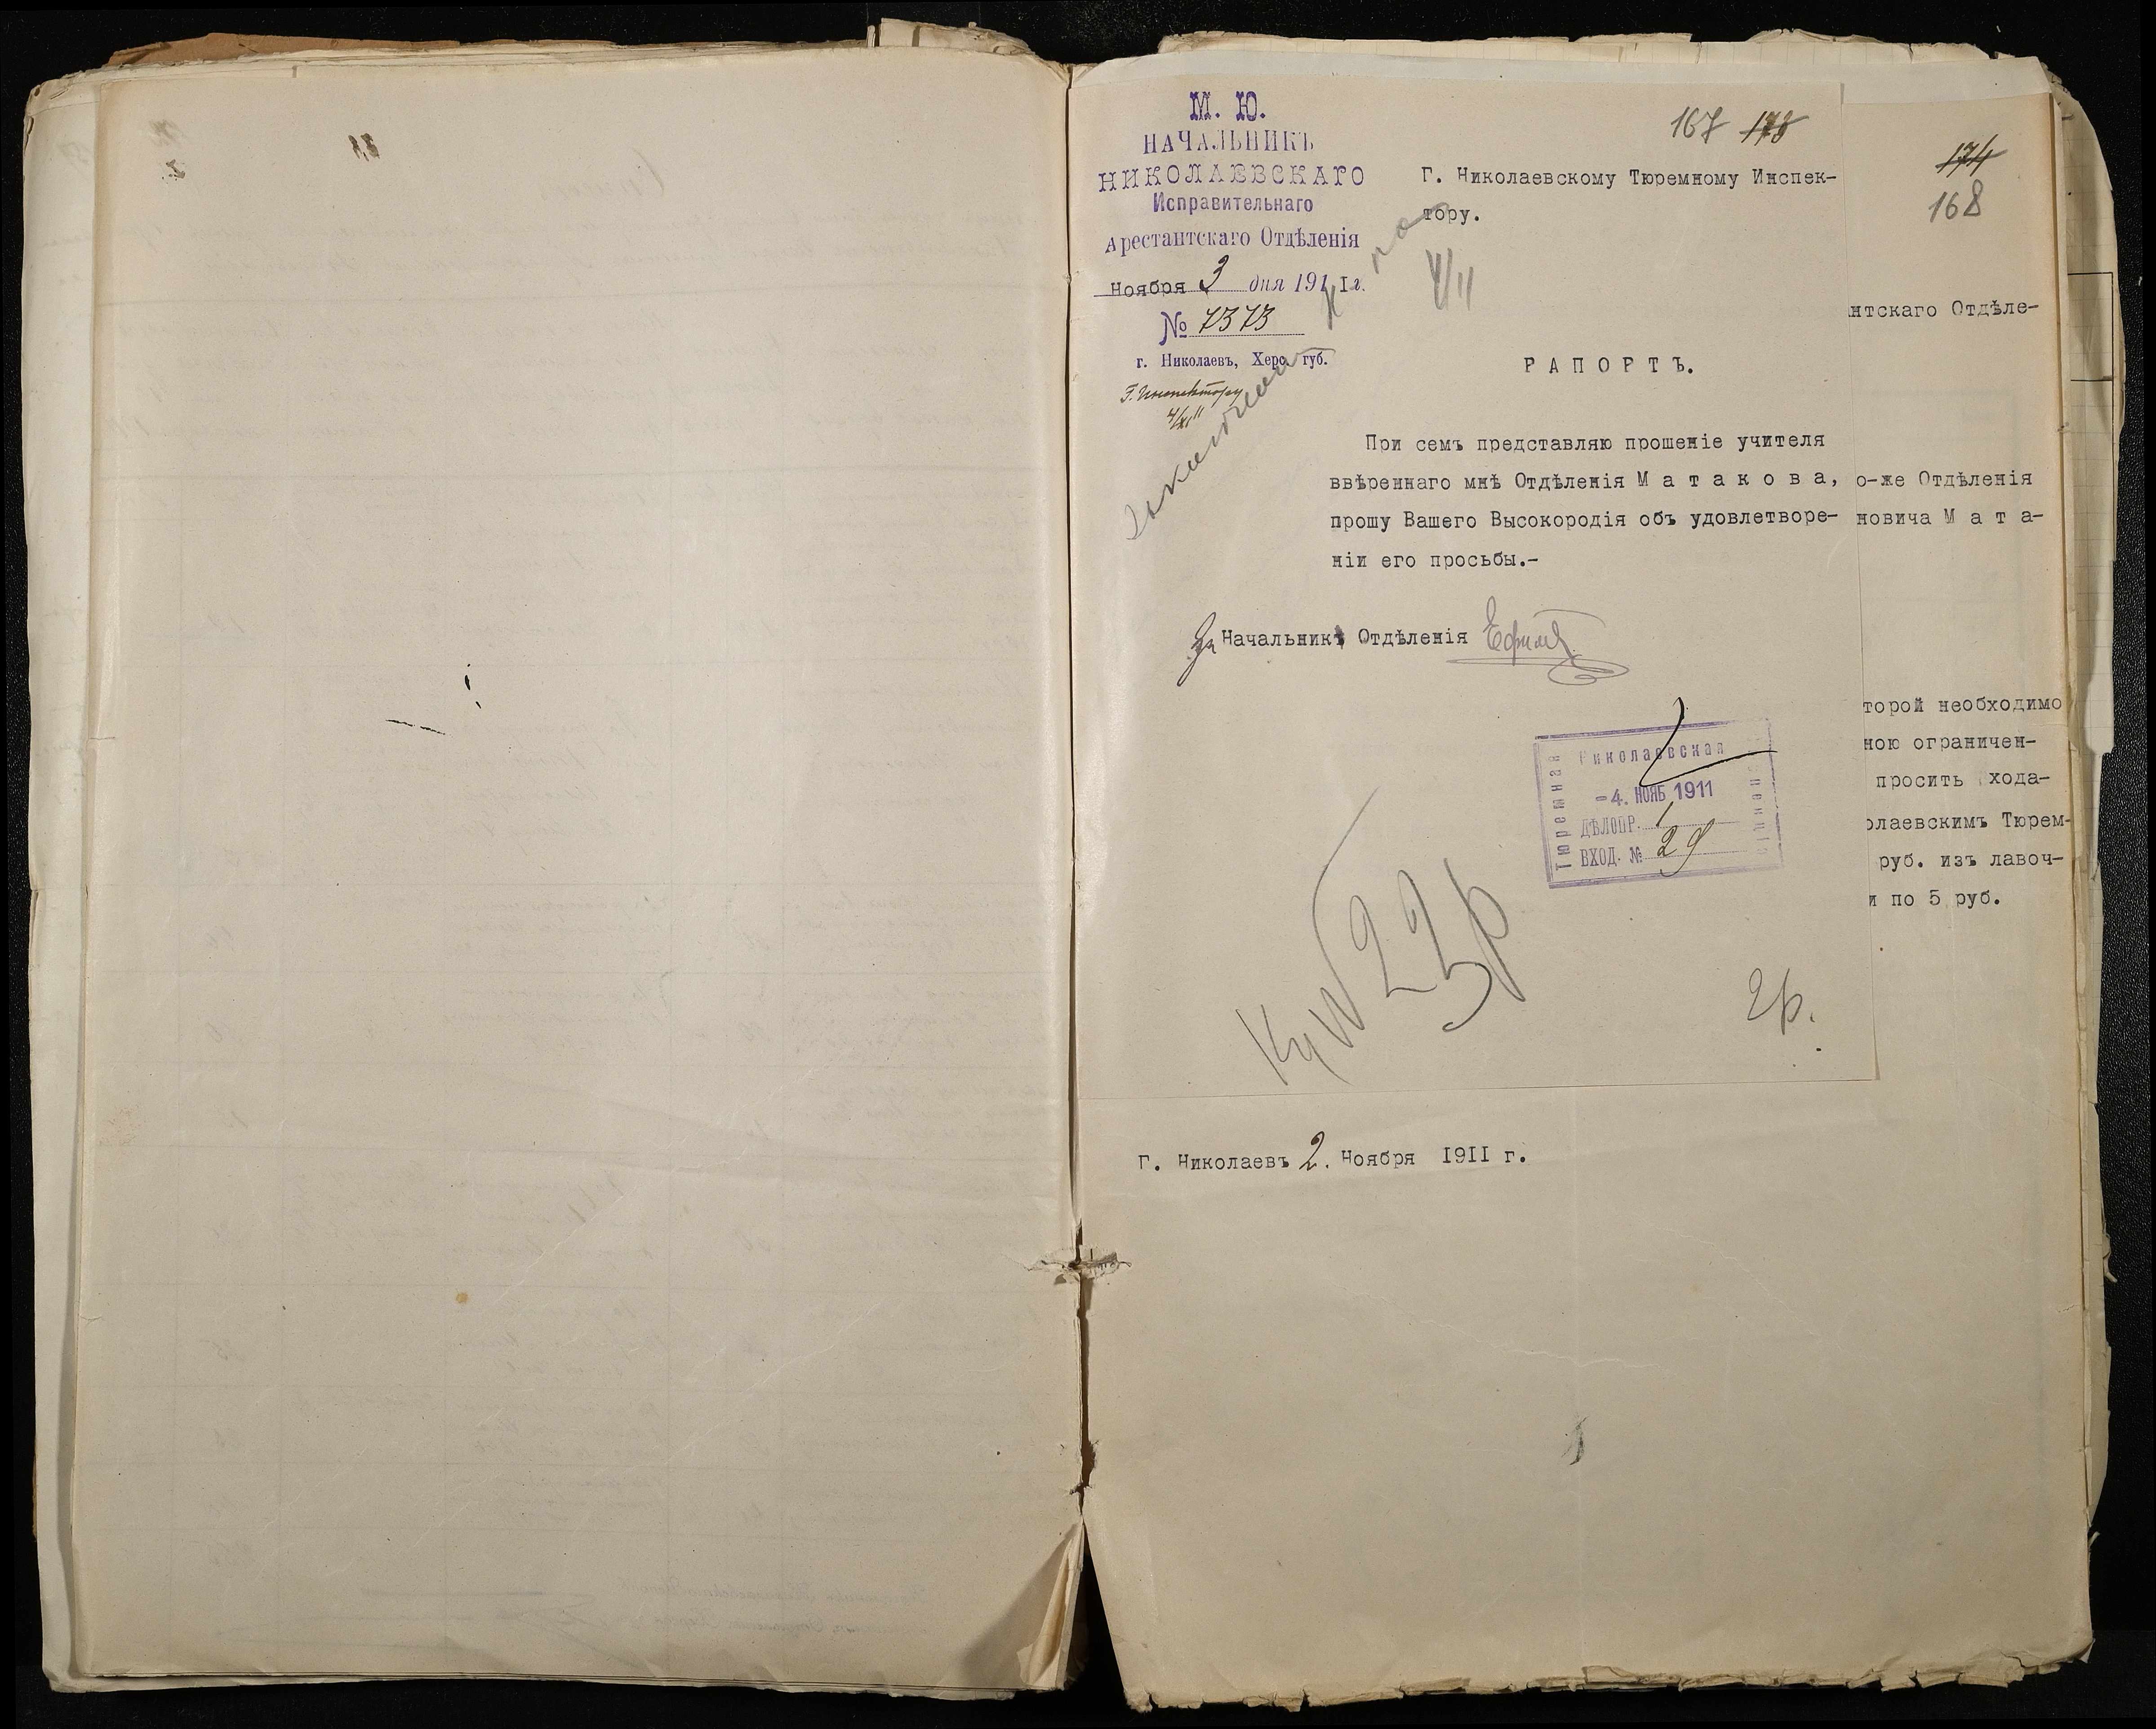 М. Ю.
НАЧАЛЬНИКЪ
НИКОЛАЕВСКАГО
Исправительнаго
Арестантскаго Отдѣленія
Ноября 3 дня 1911 г.
№ 7373
г. Николаевъ, Херс. губ.
Г. Инспектору
4/XI 11
167 173
Г. Николаевскому Тюремному Инспек-
тору.
4/11
РАПОРТЪ.
При семъ представляю прошеніе учителя
ввѣреннаго мнѣ Отдѣленія Матакова,
прошу Вашего Высокородія объ удовлетворе-
ніи его просьбы.-
За Начальника Отдѣленія
Николаевская
Тюремная
-4. НОЯБ 1911
ДѢЛОПР. 1
ВХОД. № 29
22р
2р.
174
168
нтскаго Отдѣле-
о-же Отдѣленія
новича Мата-
торой необходимо
ною ограничен-
просить хода-
олаевскимъ Тюрем-
руб. изъ лавоч-
и по 5 руб.
Г. Николаевъ 2. Ноября 1911 г.